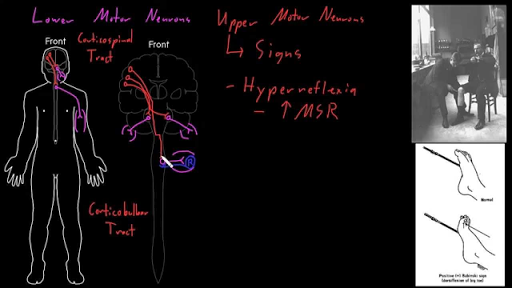 Lower Motor Neurons
Upper Motor Neurons
Front
Corticospinal
Tract
Front
Signs
- Hyperreflexia
- ↑ MSR
R
Corticobulbar
Tract
Normal
Positive (+) Babinski sign